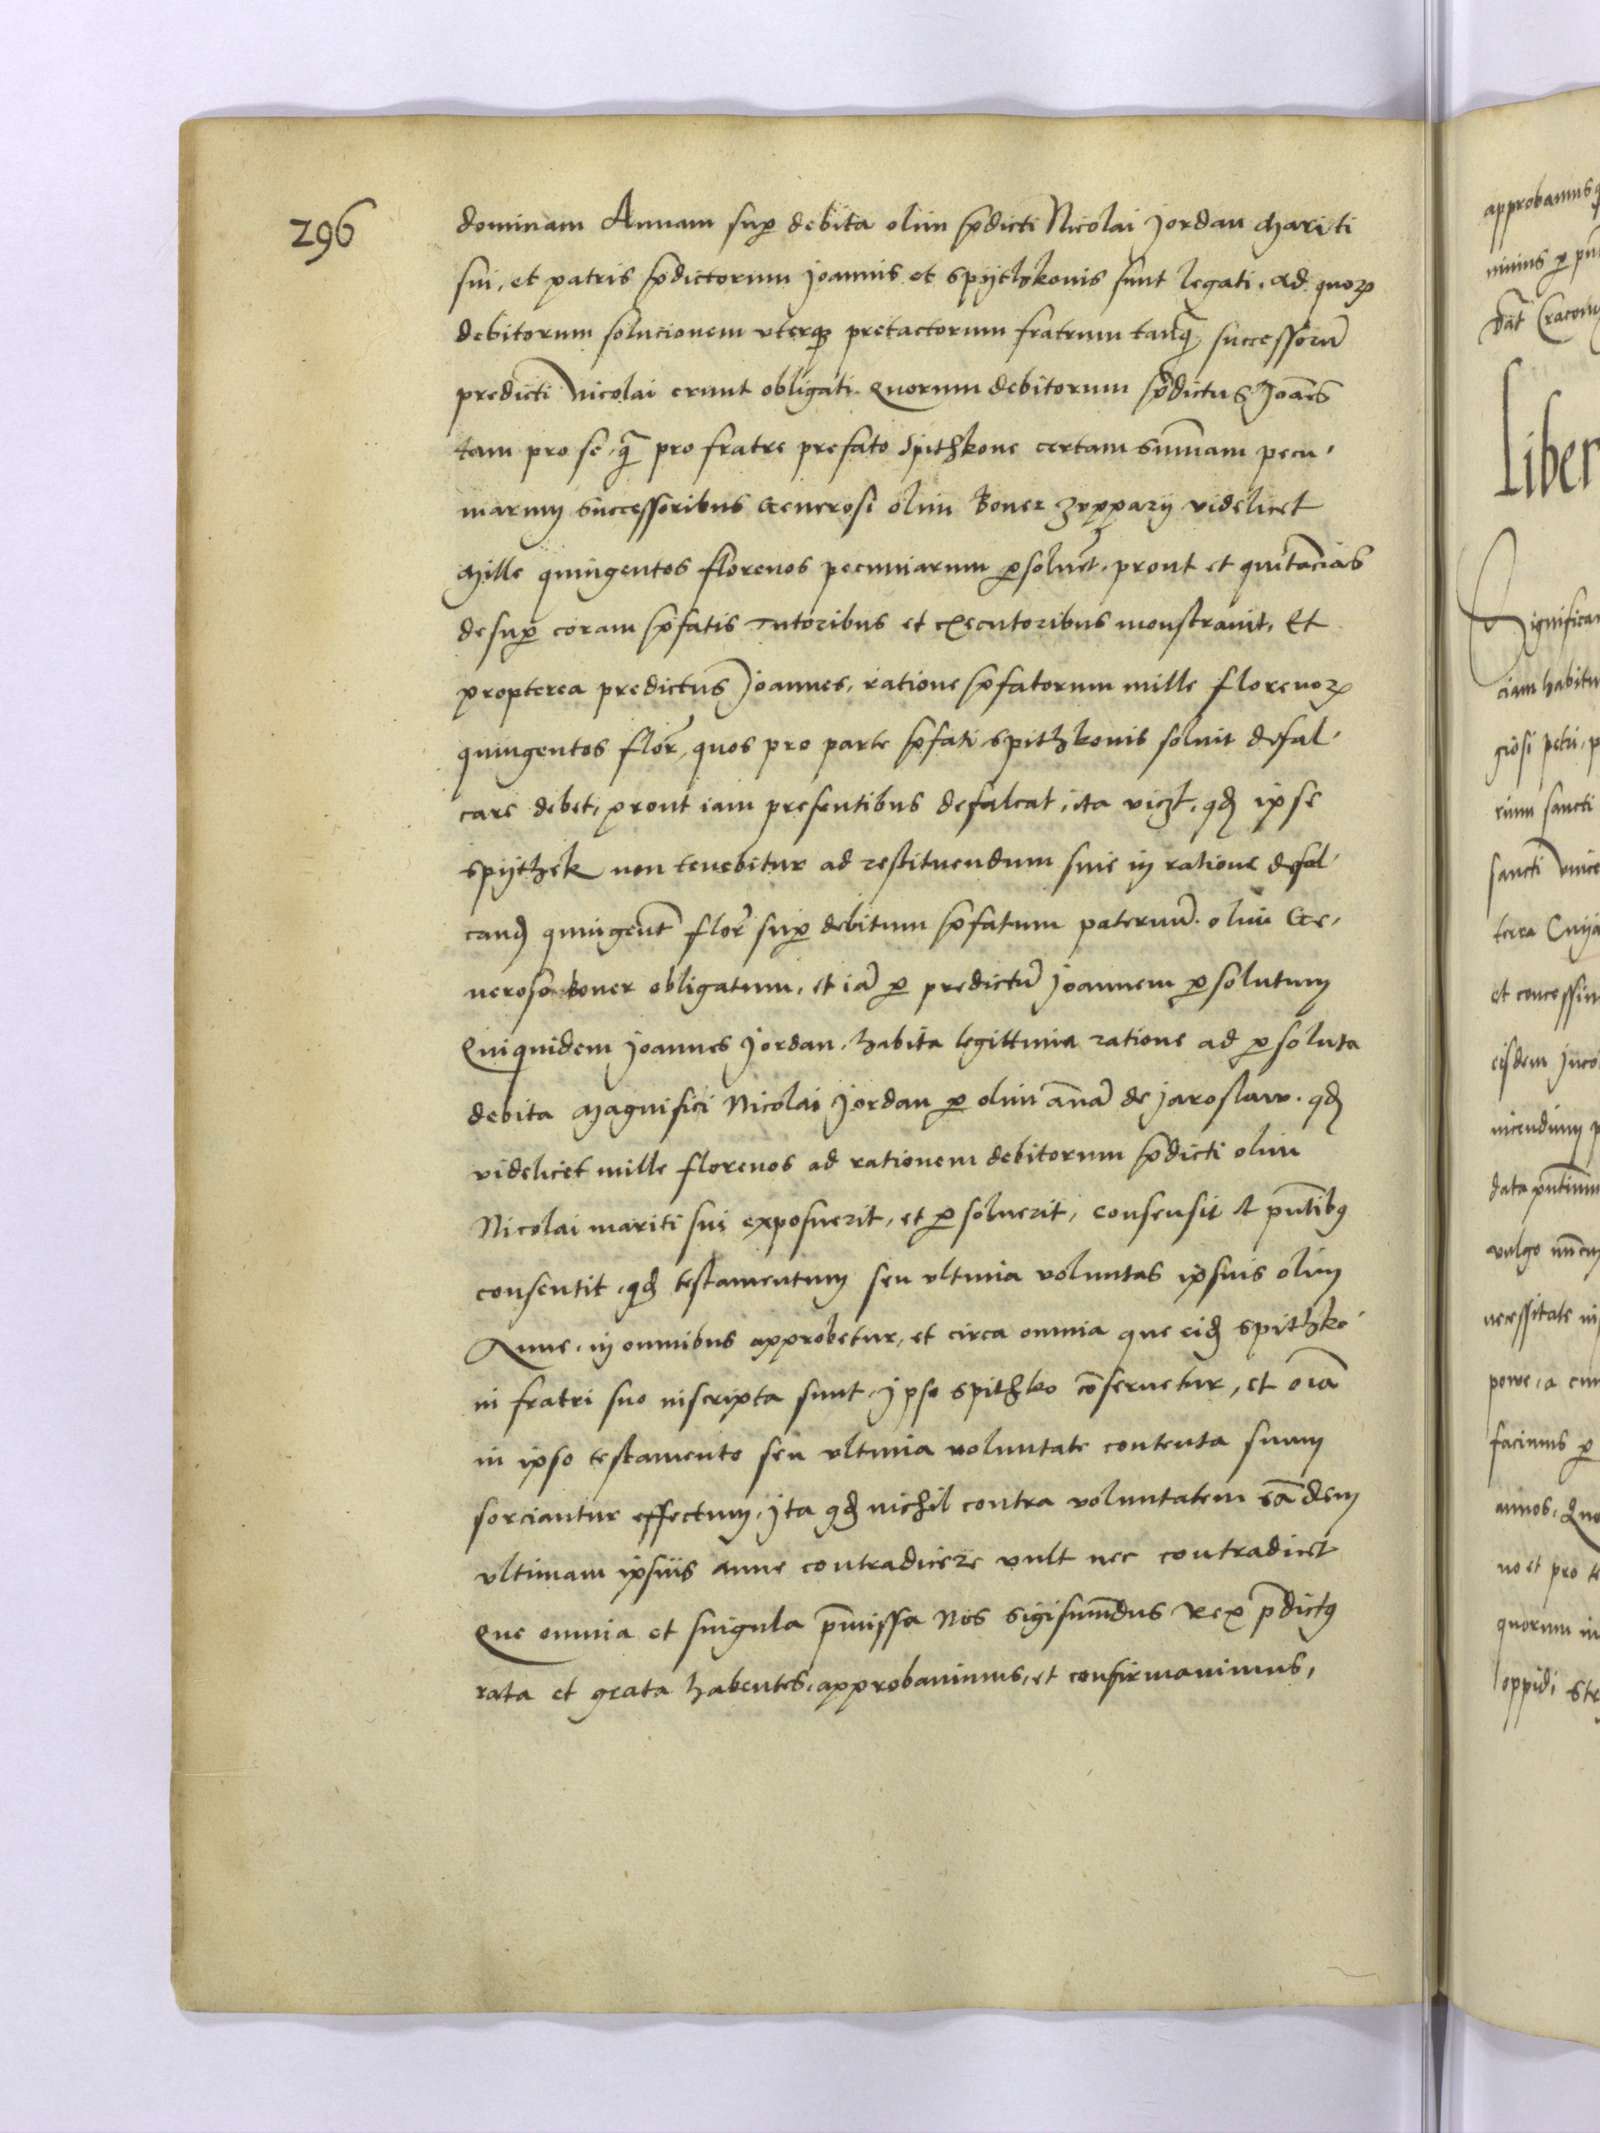 296
dominam Annam sup debita olim pdicti Nicolai Jordan Mariti
sui, et patris pdictorum Joannis et Spythkonis sunt legati. Ad quorꝝ
debitorum solucionem uterqꝫ pretactorum fratrum tanq̃ successorũ
predicti Nicolai erunt obligati. Quorum debitorum pdictus Joañes
tam pro se, q̃ pro fratre prefato Spithkone certam sum̃am pecu,
niarum successoribus Generosi olim Boner Zuppary videlicet
Mille quingentos florenos pecuniarum psoluet, prout et quitan̄cias
desup coram pfatis Tutoribus et executoribus monstrauit. Et
propterea predictus Joannes, ratione pfatorum mille florenoꝝ
quingentos florē, quos pro parte pfati Spithkonis soluit defal,
care debet, prout iam presentibus defalcat, ita viczt, qd ipse
Spythek non tenebitur ad restituendum siue in ratione defal,
cand quingent florē sup debitum pfatum paternũ olim Ge,
neroso Boner obligatum, et iã p predictũ Joannem psolutum
Quiquidem Joannes Jordan, habita legittima ratione ad psoluta
debita Magnifici Nicolai Jordan p olim añã de Jaroslaw. qd
videlicet mille florenos ad rationem debitorum pdicti olim
Nicolai mariti sui exposuerit, et psoluerit, consensit et pn̄tibꝰ
consentit, qd testamentum seu ultima voluntas ipsius olim
Anne, in omnibus approbetur, et circa omnia que eid Spithko,
ni fratri suo inscripta sunt, ipse Spithko cõseruetur, et oĩa
in ipso testamento seu ultima voluntate contenta suum
sorciantur effectum, Ita qd nichil contra voluntatem eãdem
ultimam ipsius Anne contradicere vult nec contradicet
Que omnia et singula p̄missa Nos Sigismũdus Rex p̄dictꝰ
rata et grata habentes, approbauimus, et confirmauimus,
approbamus
Liber
Significa
ciam habitu
giosi petri, p
rium sancti
sancti
terra
et concessim
eisdem
data
vulgo
necessitate in
facimus p
annos. Quo
no et pro te
quorum in
oppidi